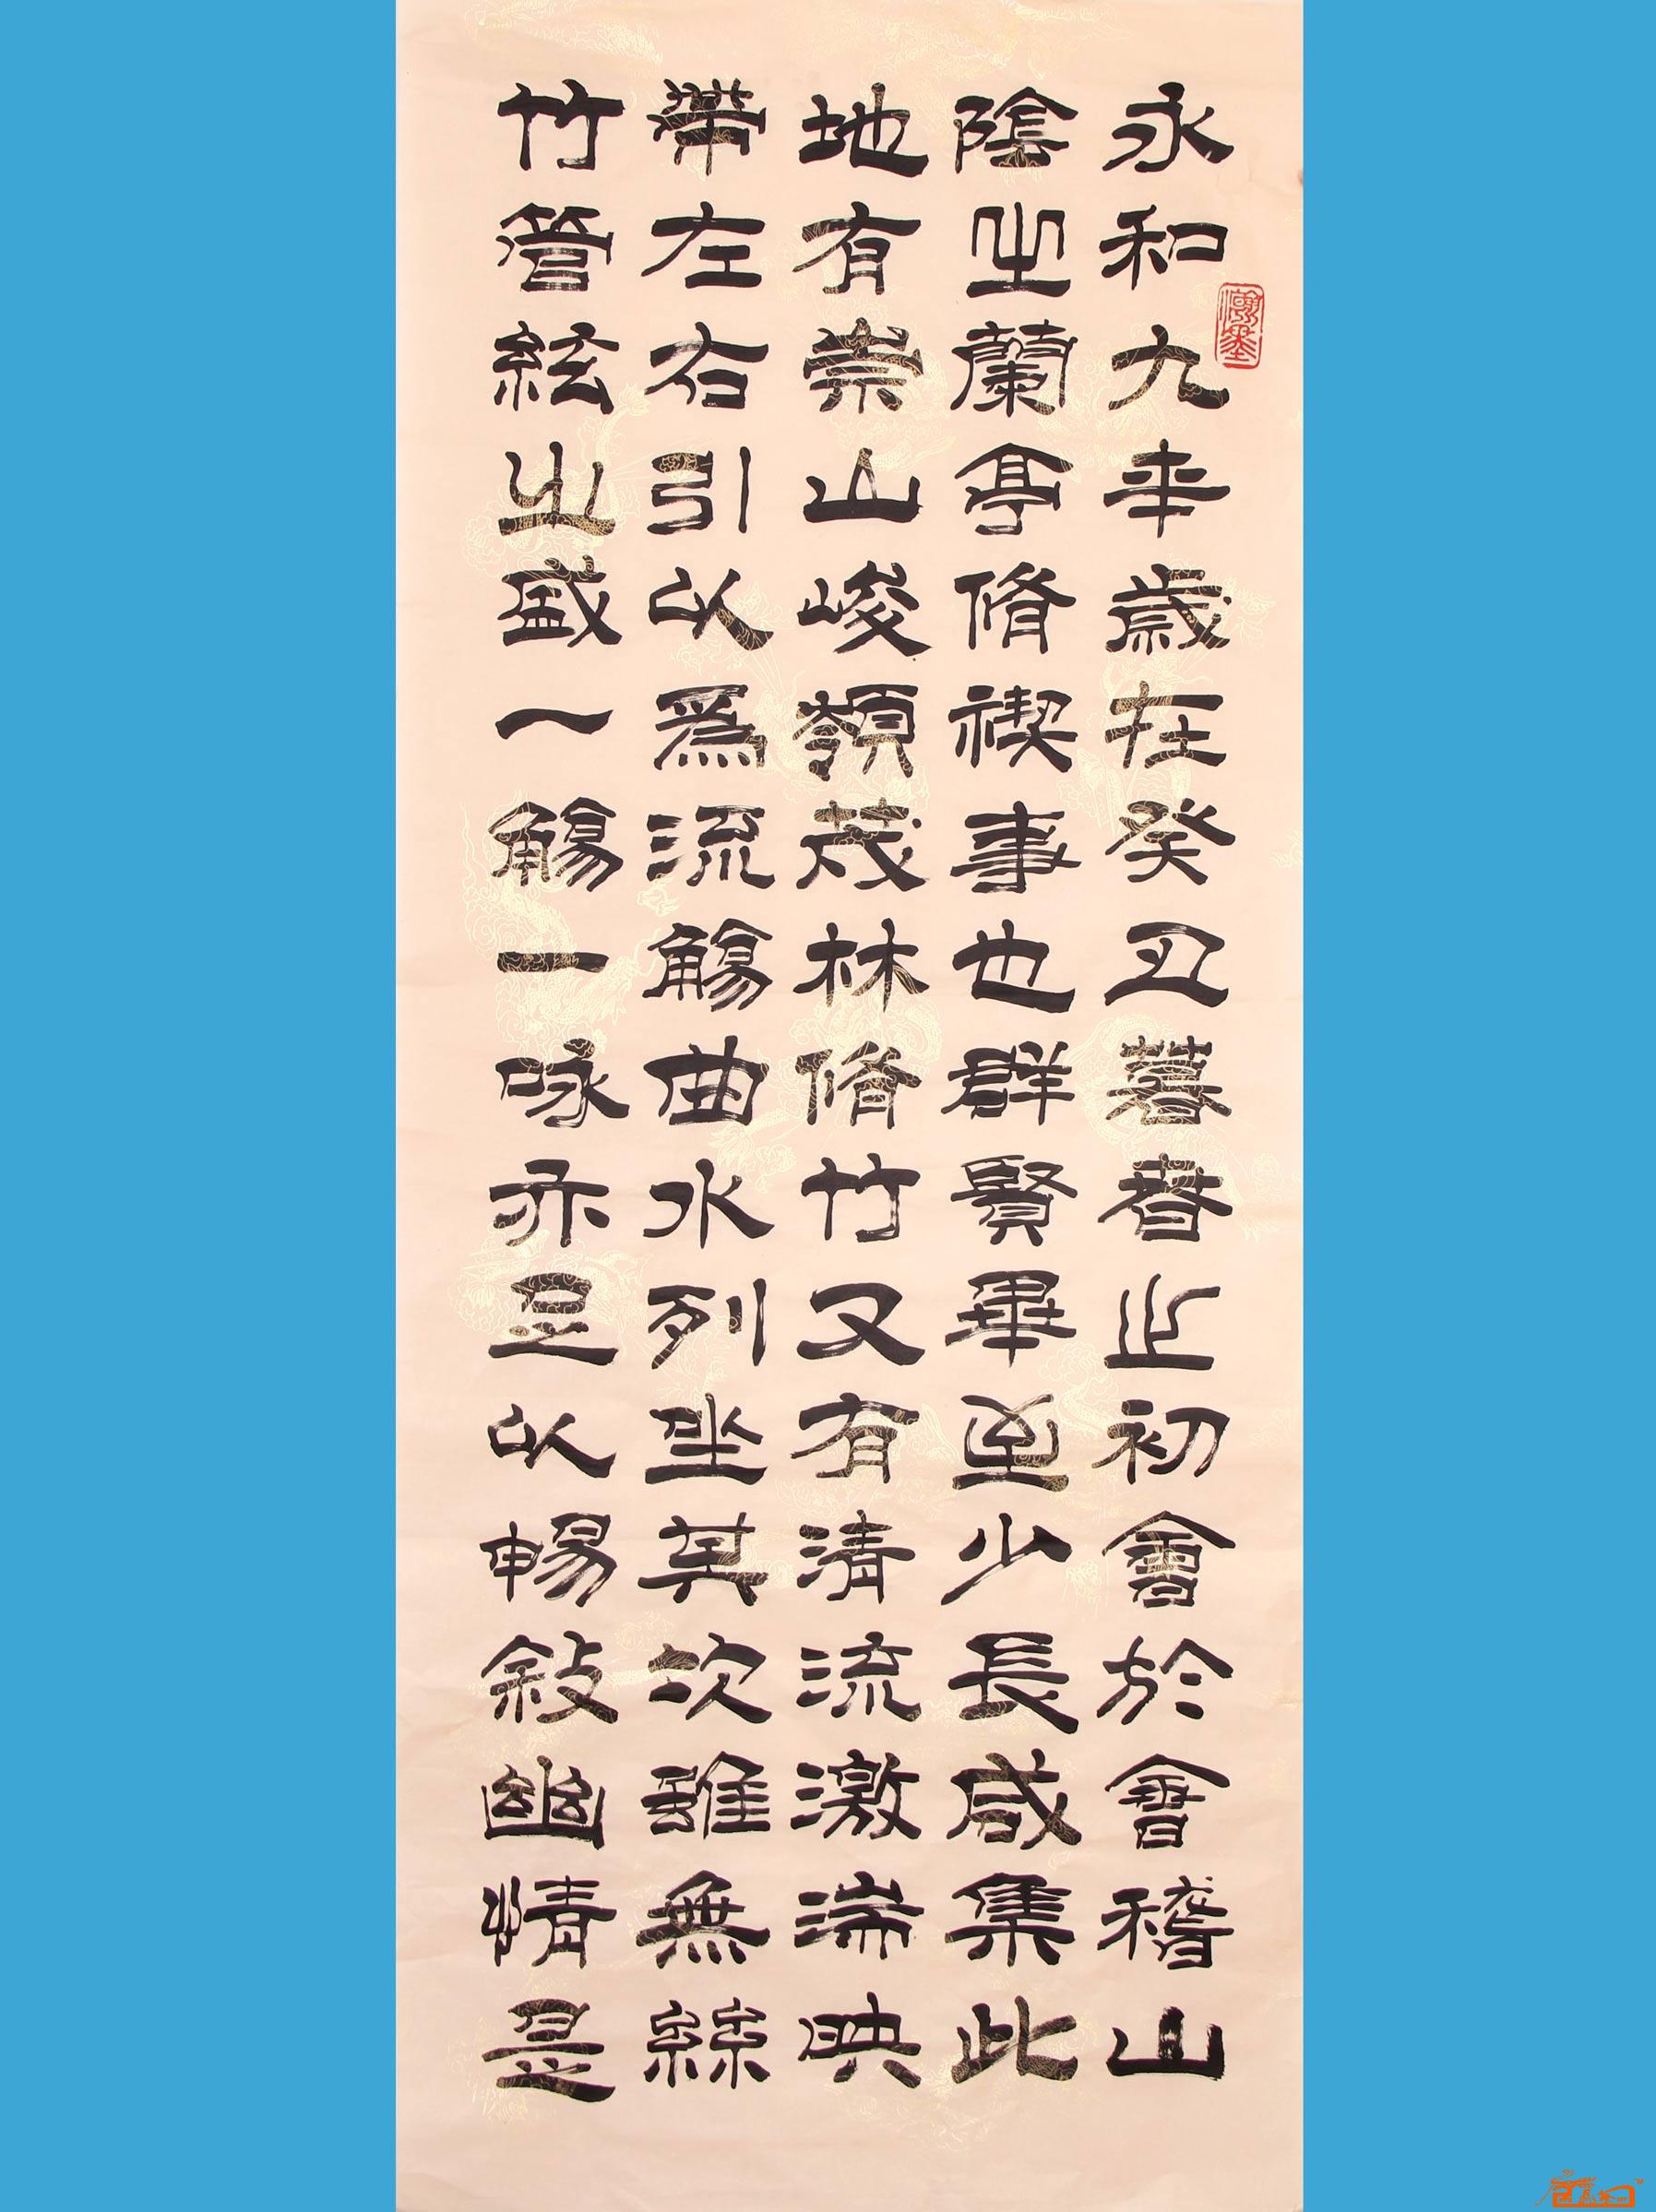 永和九年歲在癸丑暮春之初會於會稽山
陰之蘭亭脩禊事也群賢畢至少長咸集此
地有崇山峻領茂林脩竹又有清流激湍映
帶左右引以為流觴曲水列坐其次雖無絲
竹管絃之盛一觴一咏亦足以暢敘幽情是
瀚墨